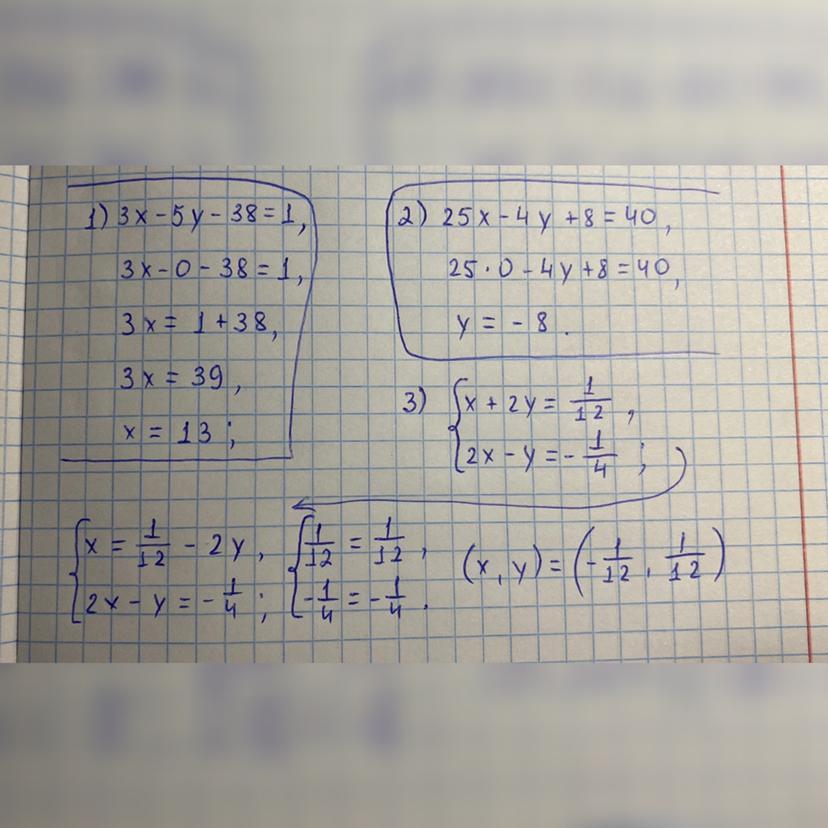 1) 3x - 5y - 38 = 1,
3x - 0 - 38 = 1,
3x = 1 + 38,
3x = 39,
x = 13;
2) 25x - 4y + 8 = 40,
25 · 0 - 4y + 8 = 40,
y = - 8.
3) { x + 2y = 1/12,
2x - y = - 1/4;
{ x = 1/12 - 2y,
2x - y = - 1/4;
{ 1/12 = 1/12,
- 1/4 = - 1/4.
(x, y) = (- 1/12, 1/12)